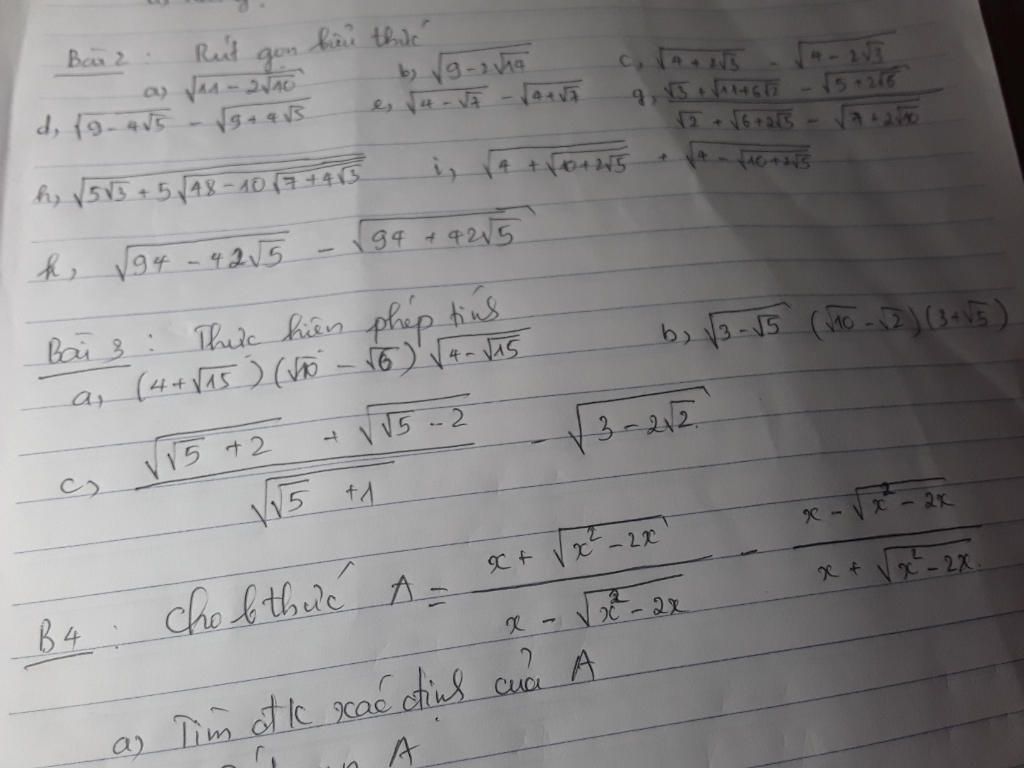 Bài 2 : Rút gọn biểu thức
a) √(11 - 2√10) b) √(9 - 2√14) c, √(4 + 2√3) - √(4 - 2√3)
d, √(9 - 4√5) - √(9 + 4√5) e, √(4 - √7) - √(4 + √7) g, (√3 + √(11 + 6√2) - √(5 + 2√6)) / (√2 + √(6 + 2√5) - √(7 + 2√10))
h, √(5√3 + 5√(48 - 10√(7 + 4√3))) i, √(4 + √(10 + 2√5)) + √(4 - √(10 + 2√5))
k, √(94 - 42√5) - √(94 + 42√5)
Bài 3 : Thực hiện phép tính
a, (4 + √15)(√10 - √6) √(4 - √15) b, √(3 - √5) (√10 - √2)(3 + √5)
c) (√(√5 + 2) + √(√5 - 2)) / √(√5 + 1) - √(3 - 2√2)
B4 : Cho bthức A = (x + √(x² - 2x)) / (x - √(x² - 2x)) - (x - √(x² - 2x)) / (x + √(x² - 2x))
a) Tìm đk xác định của A
A